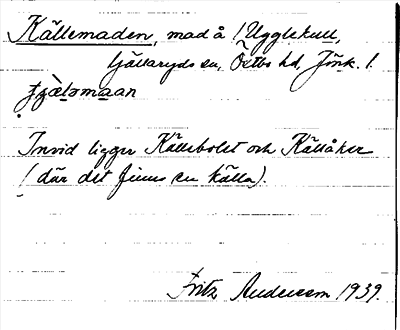 Källemaden, mad å / Ugglekull,
Tjällaryds sn, Östbo hd, Jönk. l.
Invid ligger Källebolet och Källåker
(där det finns en källa).
Fritz Andersson 1939.